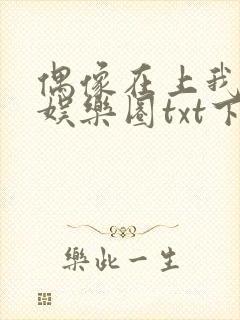 偶像在上我
娱樂圈txt下
樂此一生